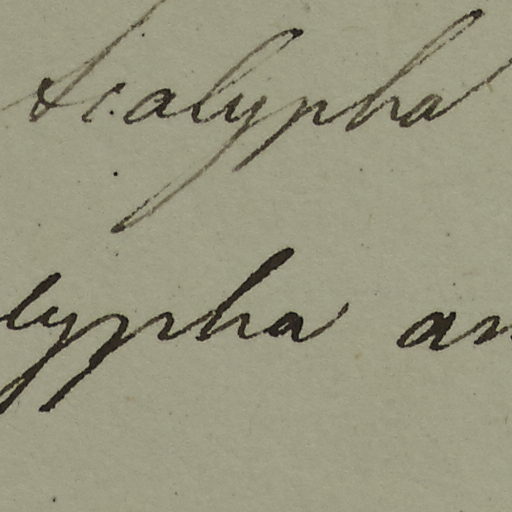 Acalypha
lypha an